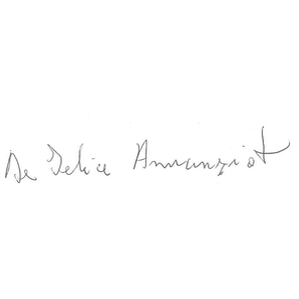 De Felice Annunziat